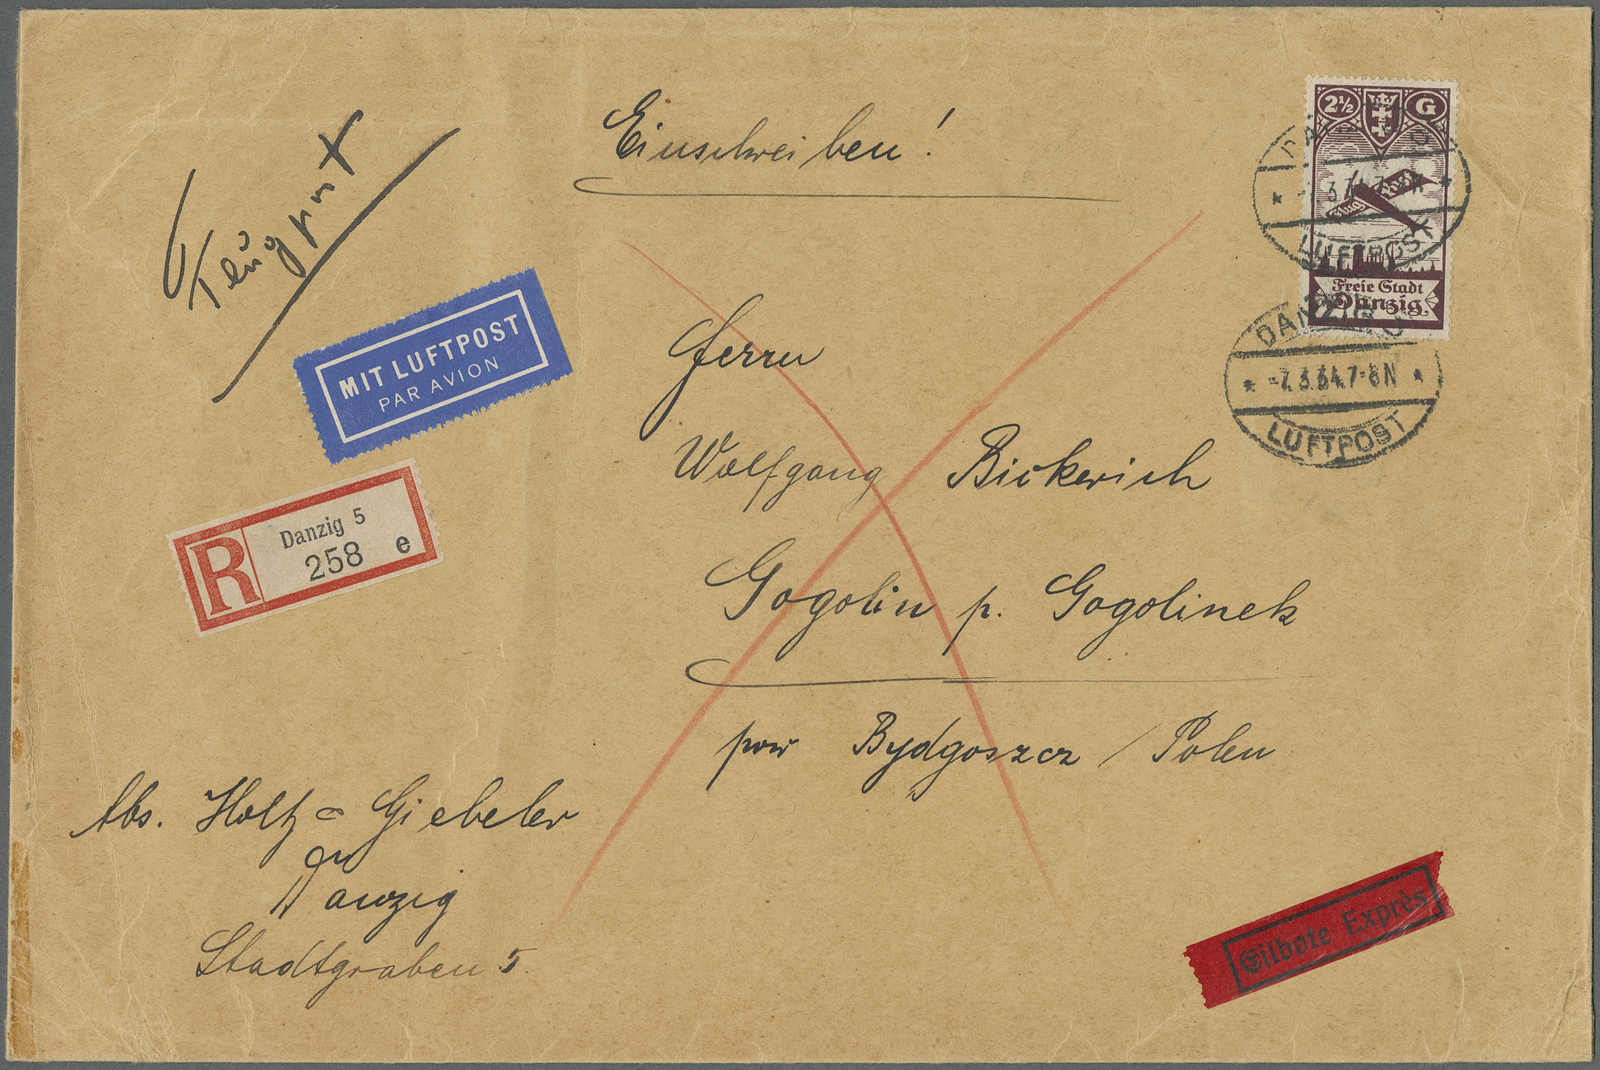 Einschreiben!
Flugpost
2½ G
Flug Post
Freie Stadt
Danzig.
DANZIG
-7.3.34.7-8N
LUFTPOST
DANZIG
-7.3.34.7-8N
LUFTPOST
MIT LUFTPOST
PAR AVION
R
Danzig 5
258 e
Herrn
Wolfgang Bickerich
Gogolin p. Gogolinek
pow Bydgoszcz / Polen
Abs. Holtz = Giebeler
Danzig
Stadtgraben 5
Eilbote Exprès